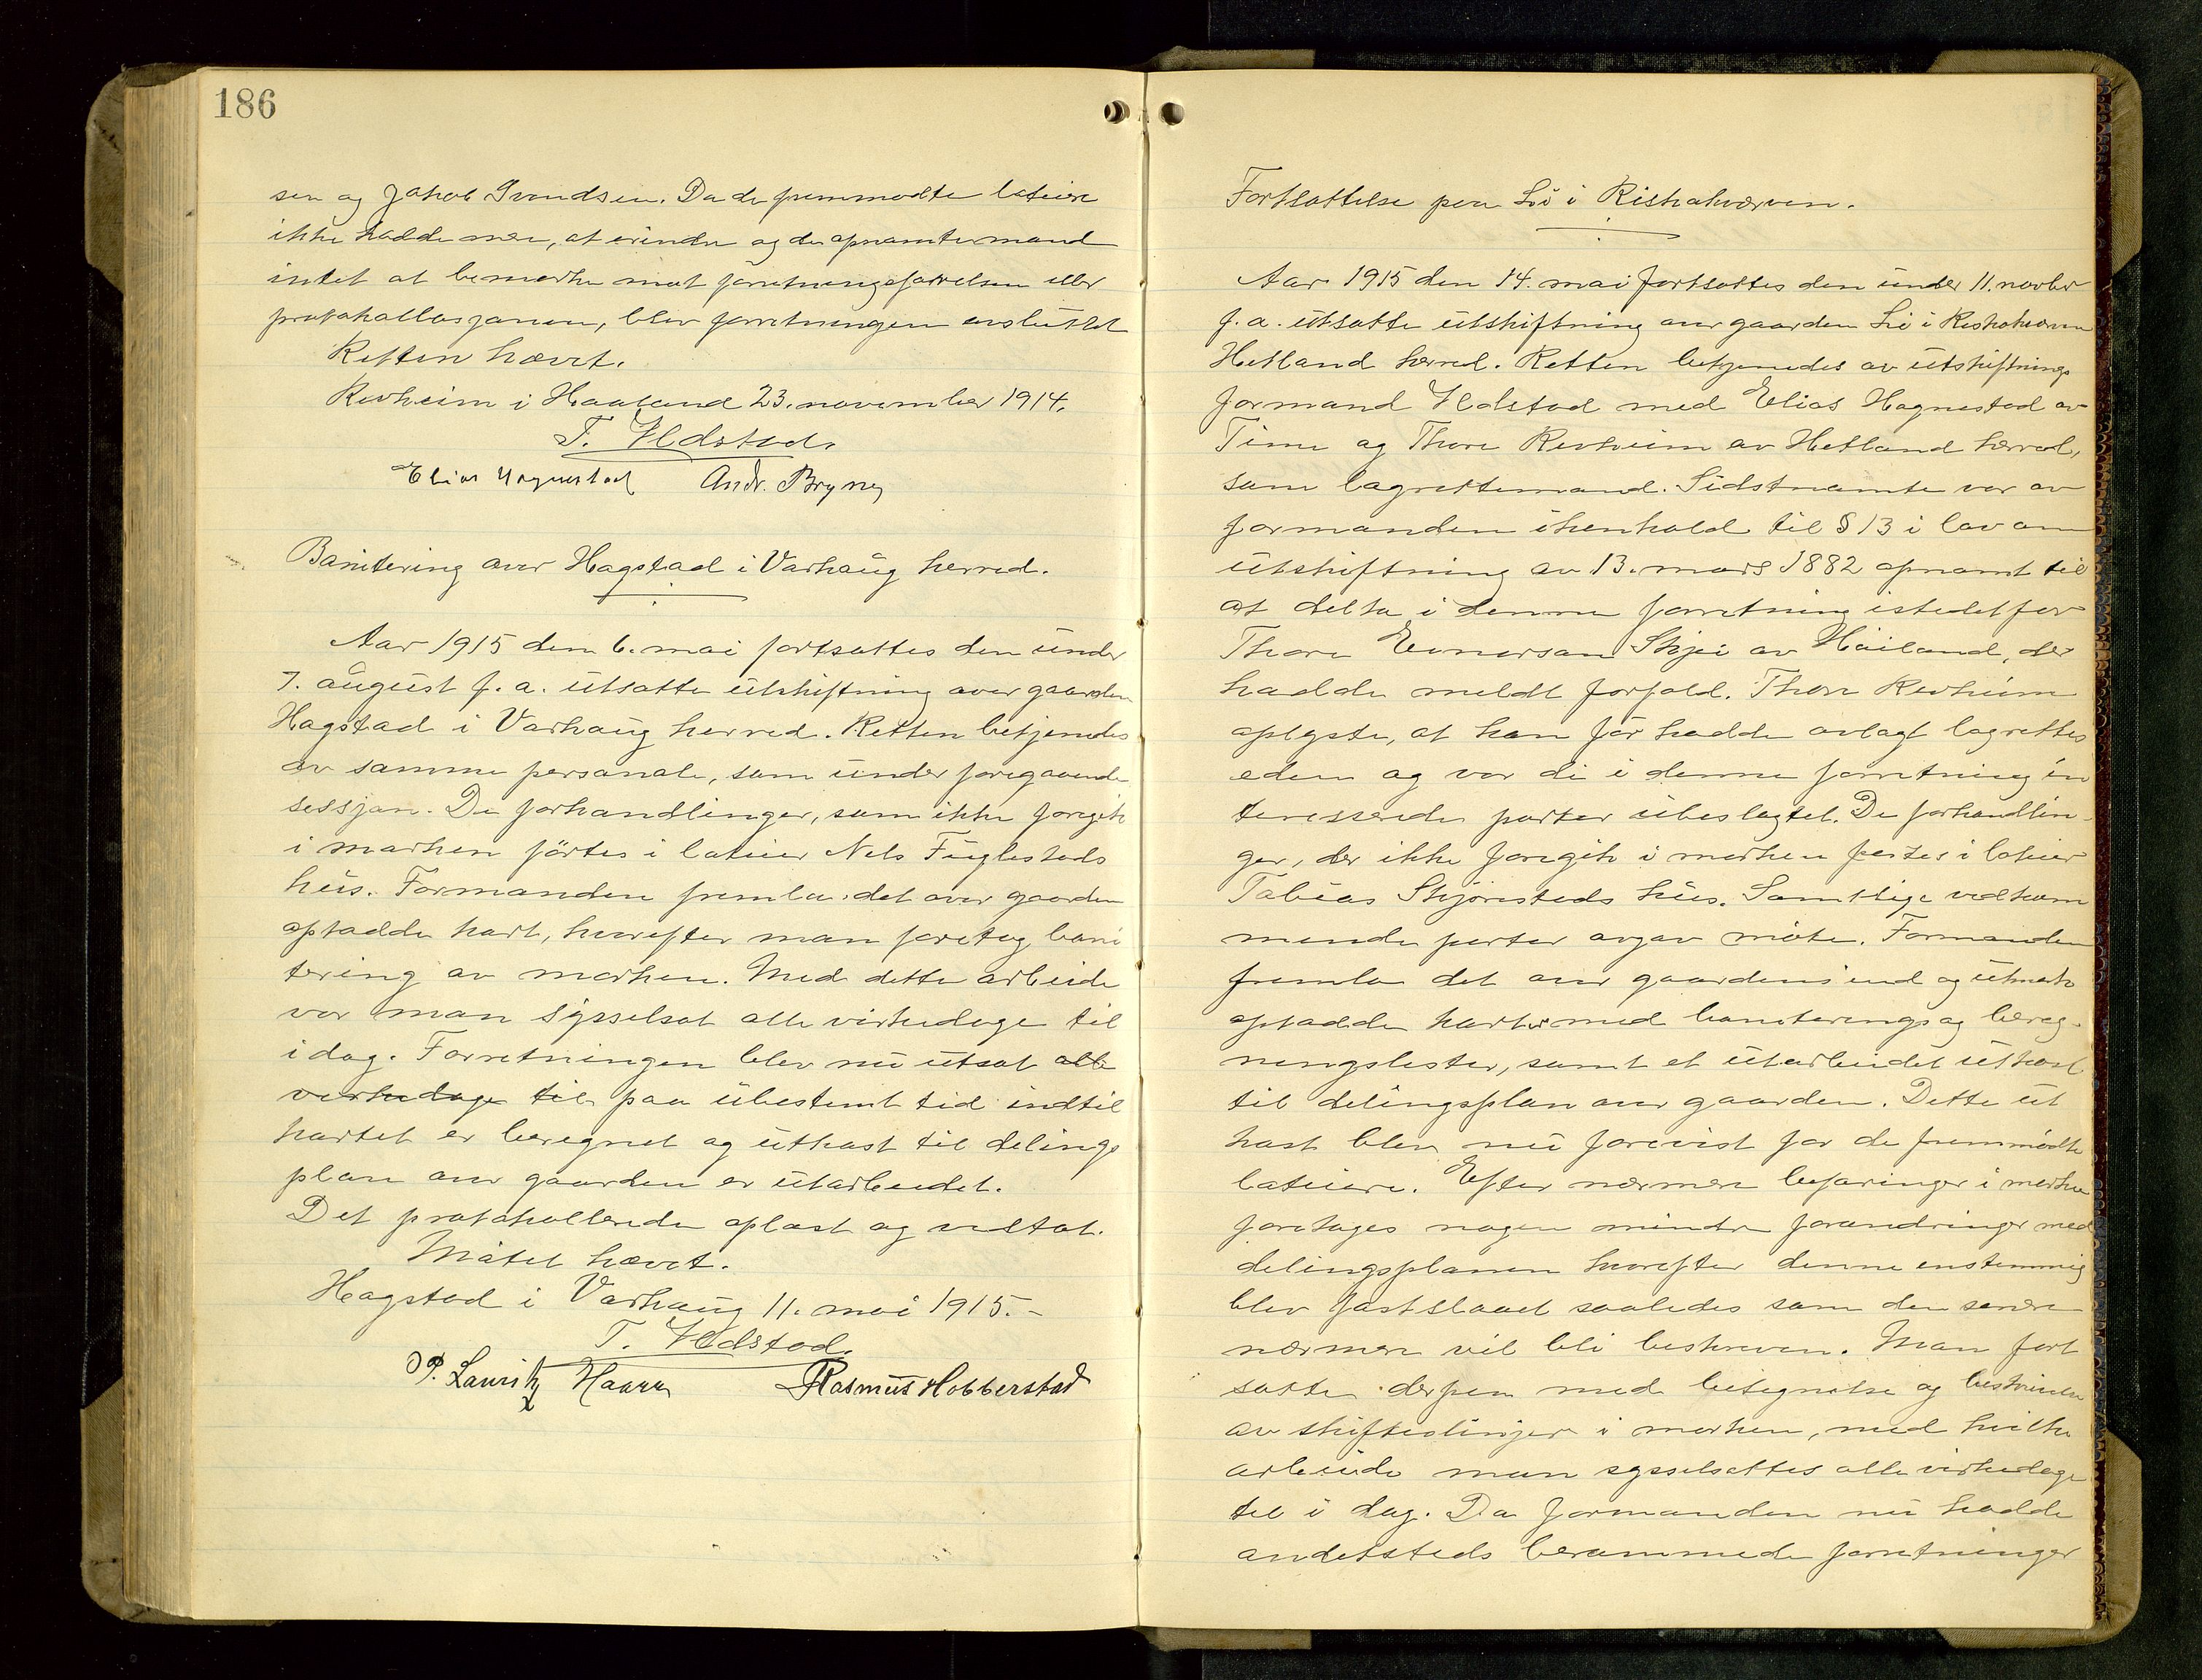 186
sen og Jakob Svendsen. Da de fremmødte lodeiere
ikke hadde mere, at erindre og de opnævnte mænd
intet at bemerke mot forretningsførelsen eller
protokollasjonen, blev forretningen avsluttet
Retten hævet.
Revheim i Haaland 23. november 1914.
T. Udstad.
Elias Hognestad Andr. Bryne
Bonitering over Hagstad i Varhaug herred.
Aar 1915 den 6. mai fortsattes den under
7. august f. a. utsatte utskiftning over gaarden
Hagstad i Varhaug herred. Retten betjenedes
av samme personale, som under foregaaende
sessjon. De forhandlinger, som ikke foregik
i marken førtes i lodeier Nels Fuglesteds
hus. Formanden fremla det over gaarden
optadde kart, hvorefter man foretog boni
tering av marken. Med dette arbeide
var man sysselsat alle virkedage til
idag. Forretningen blev nu utsat alle
virkedage til paa ubestemt tid indtil
kartet er beregnet og utkast til delings
plan over gaarden er utarbeidet.
Det protokollerede oplæst og vedtat.
Møtet hævet.
Hagstad i Varhaug 11. mai 1915.-
T. Udstad.
P. Lauritz Haarr Rasmus Hobberstad
Fortsættelse paa Li i Riskakverven.
Aar 1915 den 14. mai fortsattes den under 11. novbr
f. a. utsatte utskiftning over gaarden Li i Riskakverven
Hetland herred. Retten betjenedes av utskiftnings
formand Udstad med Elias Hognestad av
Time og Thore Revheim av Hetland herred,
som lagrettemænd. Sidstnævnte var av
formanden ihenhold til § 13 i lov om
utskiftning av 13. mars 1882 opnævnt til
at delta i denne forretning istedetfor
Thore Evensen Skjei av Høiland, der
hadde meldt forfald. Thore Revheim
oplyste, at han før hadde avlagt lagrettes
eden og var de i denne forretning in
teresserede parter ubeslægtet. De forhandlin-
ger, der ikke foregik i marken førtes i lodeier
Tobias Skjøresteds hus. Samtlige vedkom
mende parter avgav møte. Formanden
fremla det over gaardens ind og utmark
optadde karter med boniterings og bereg-
ningslister, samt et utarbeidet utkast
til delingsplan over gaarden. Dette ut
kast blev nu forevist for de fremmødte
lodeiere. Efter nærmere befaringer i marken
foretoges nogen mindre forandringer med
delingsplanen hvorefter denne enstemmig
blev fastslaaet saaledes som den senere
nærmere vil bli beskreven. Man fort
satte derpaa med betegnelse og beskrivelse
av skiftedlinjer i marken, med hvilke
arbeide man sysselsattes alle virkedage
til i dag. Da formanden nu hadde
andetsteds berammede forretninger